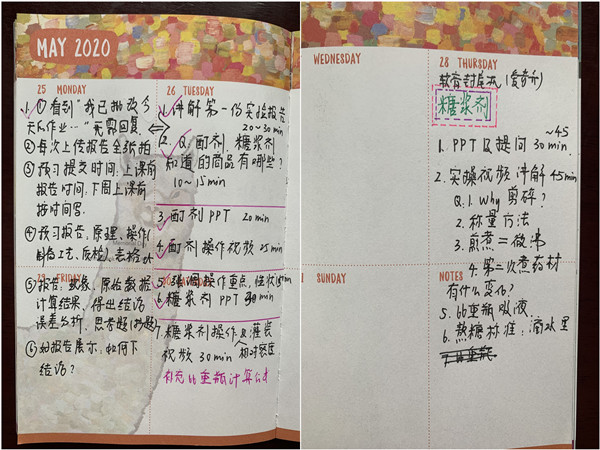 MAY 2020
25 MONDAY
1. ①看到"我已批改今
天作业…"无需回复.
②每次上传报告全纸拍
③预习提交时间,上课前
报告时间,下周上课前
按时间写.
④预习报告,原理、操作(
制备工艺、质检)、表格
29 FRIDAY
⑤报告:现象、原始数据
计算结果、得出结论
误差分析、思考题(抄题)
⑥好报告展示,如何下
结论?
26 TUESDAY
1.讲解第一份实验报告
20~30min
2. Q 酊剂、糖浆剂
知道的商品有哪些?
10~15min
3.酊剂PPT 20min
4.酊剂操作视频 25min
5.强调操作重点,
6.糖浆剂 PPT 30min
7.糖浆剂操作及灌装
视频 30min 相对密度
补充比重瓶计算公式
WEDNESDAY
28 THURSDAY
软膏剂(爱奇艺)
糖浆剂
~45
1. PPT及提问 30min.
2.实操视频讲解45min
Q:1.Why 剪碎?
2.称量方法
3.煎煮=微沸
4.第二次煮药材
有什么变化?
5.比重瓶吸液
6.熬糖标准:滴水里
SUNDAY
NOTES